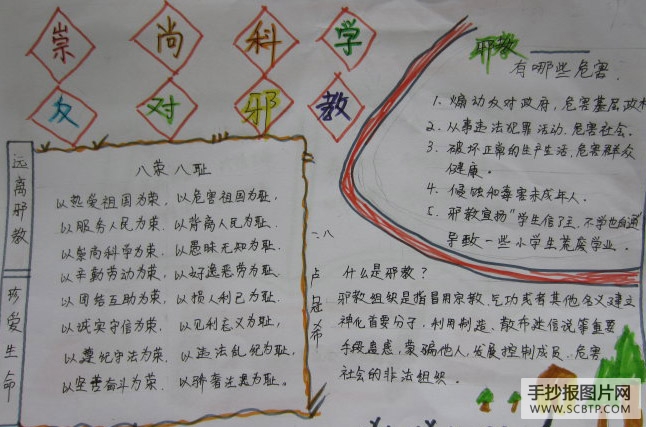 崇尚科学
反对邪教
远离邪教
珍爱生命
八荣八耻
以热爱祖国为荣、以危害祖国为耻、
以服务人民为荣、以背离人民为耻、
以崇尚科学为荣、以愚昧无知为耻、
以辛勤劳动为荣、以好逸恶劳为耻、
以团结互助为荣、以损人利己为耻、
以诚实守信为荣、以见利忘义为耻、
以遵纪守法为荣、以违法乱纪为耻、
以坚苦奋斗为荣、以骄奢注逸为耻。
二、八
卢冠希
邪教
有哪些危害.
1. 煽动反对政府,危害基层政
2. 从事违法犯罪活动,危害社会.
3. 破坏正常的生产生活,危害群众
健康.
4. 侵蚀和毒害未成年人.
5. 邪教宣扬“学生信了主,不学也自通
导致一些小学生荒废学业.
什么是邪教?
邪教组织是指冒用宗教、气功或者其他名义建立
神化首要分子,利用制造、散布迷信说等重要
手段蛊惑,蒙骗他人,发展控制成员、危害
社会的非法组织.
手抄报图片网
WWW.SCBTP.COM